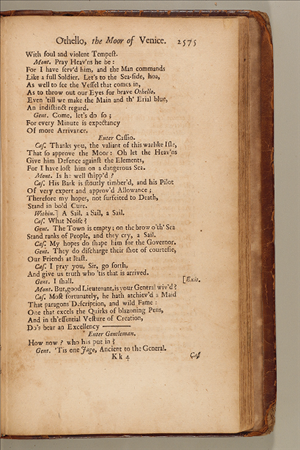 Othello, the Moor of Venice. 2575
With foul and violent Tempest.
Mont. Pray Heav'ns he be:
For I have serv'd him, and the Man commands
Like a full Soldier. Let's to the Sea-side, hoa,
As well to see the Vessel that comes in,
As to throw out our Eyes for brave Othello,
Even 'till we make the Main and th' Erial blue,
An indistinct regard.
Gent. Come, let's do so;
For every Minute is expectancy
Of more Arrivance.
Enter Cassio.
Cas. Thanks you, the valiant of this warlike Isle,
That so approve the Moor: Oh let the Heav'ns
Give him Defence against the Elements,
For I have lost him on a dangerous Sea.
Mont. Is he well shipp'd?
Cas. His Bark is stoutly timber'd, and his Pilot
Of very expert and approv'd Allowance;
Therefore my hopes, not surfeited to Death,
Stand in bold Cure.
Within.] A Sail, a Sail, a Sail.
Cas. What Noise?
Gent. The Town is empty; on the brow o'th' Sea
Stand ranks of People, and they cry, a Sail.
Cas. My hopes do shape him for the Governor.
Gent. They do discharge their shot of courtesie,
Our Friends at least.
Cas. I pray you, Sir, go forth,
And give us truth who 'tis that is arrived.
Gent. I shall. [Exit.
Mont. But, good Lieutenant, is your General wiv'd?
Cas. Most fortunately, he hath atchiev'd a Maid
That paragons Description, and wild Fame:
One that excels the Quirks of blazoning Pens,
And in th'essential Vesture of Creation,
Do's bear an Excellency ———
Enter Gentleman.
How now? who has put in?
Gent. 'Tis one Jago, Ancient to the General.
Kk 4 Cas